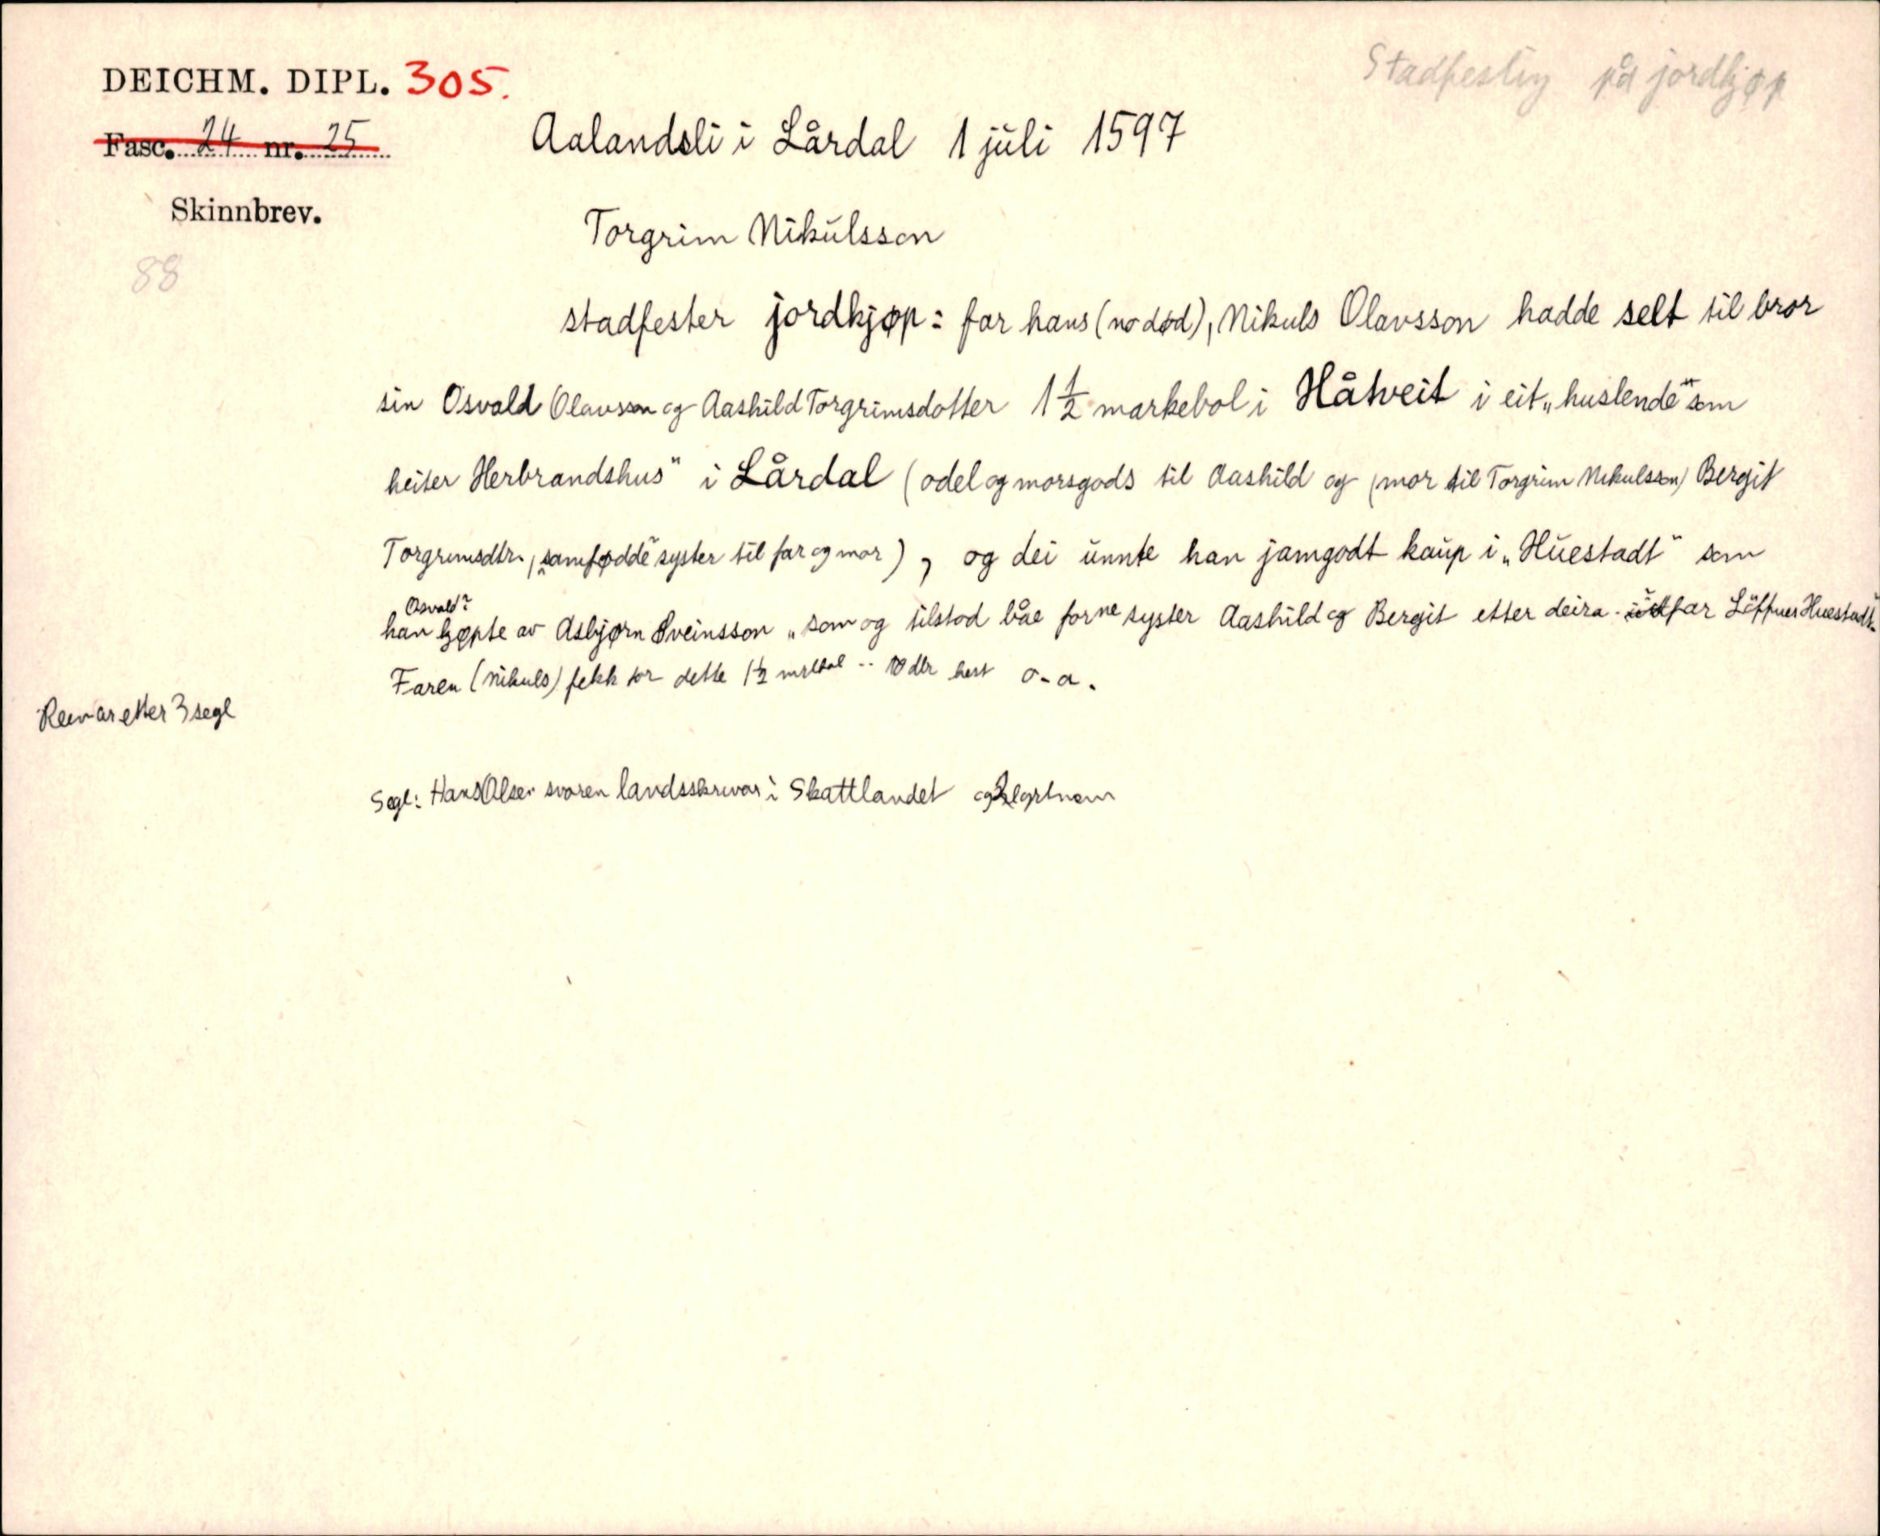 DEICHM. DIPL. 305.
Stadfesting på jordkjøp
Fasc. 24 nr. 25
Aalandsli i Lårdal 1 juli 1597
Skinnbrev.
Torgrim Nikulsson
88
stadfester jordkjøp: far hans (no død), Nikuls Olavsson hadde selt til bror
sin Osvald Olavsson og Aashild Torgrimsdotter 1 1/2 markebol i Håtveit i eit „huslende" som
heiter Herbrandshus" i Lårdal (odel og morsgods til Aashild og (mor til Torgrim Nikulsson) Bergit
Torgrimsdtr., „samfødde" syster til far og mor), og dei unnte han jamgodt kaup i „Huestadt" som
Osvald?
han kjøpte av Asbjørn Sveinsson „som og tilstod båe forne syster Aashild og Bergit etter deira far Löffuer Huestadt"
Faren (Nikuls) fekk for dette 1 1/2 mrkbol -- 10 dlr hest o.a.
Reimar etter 3 segl
Segl: Hans Olsen svoren landsskrivar i Skattlandet og 2